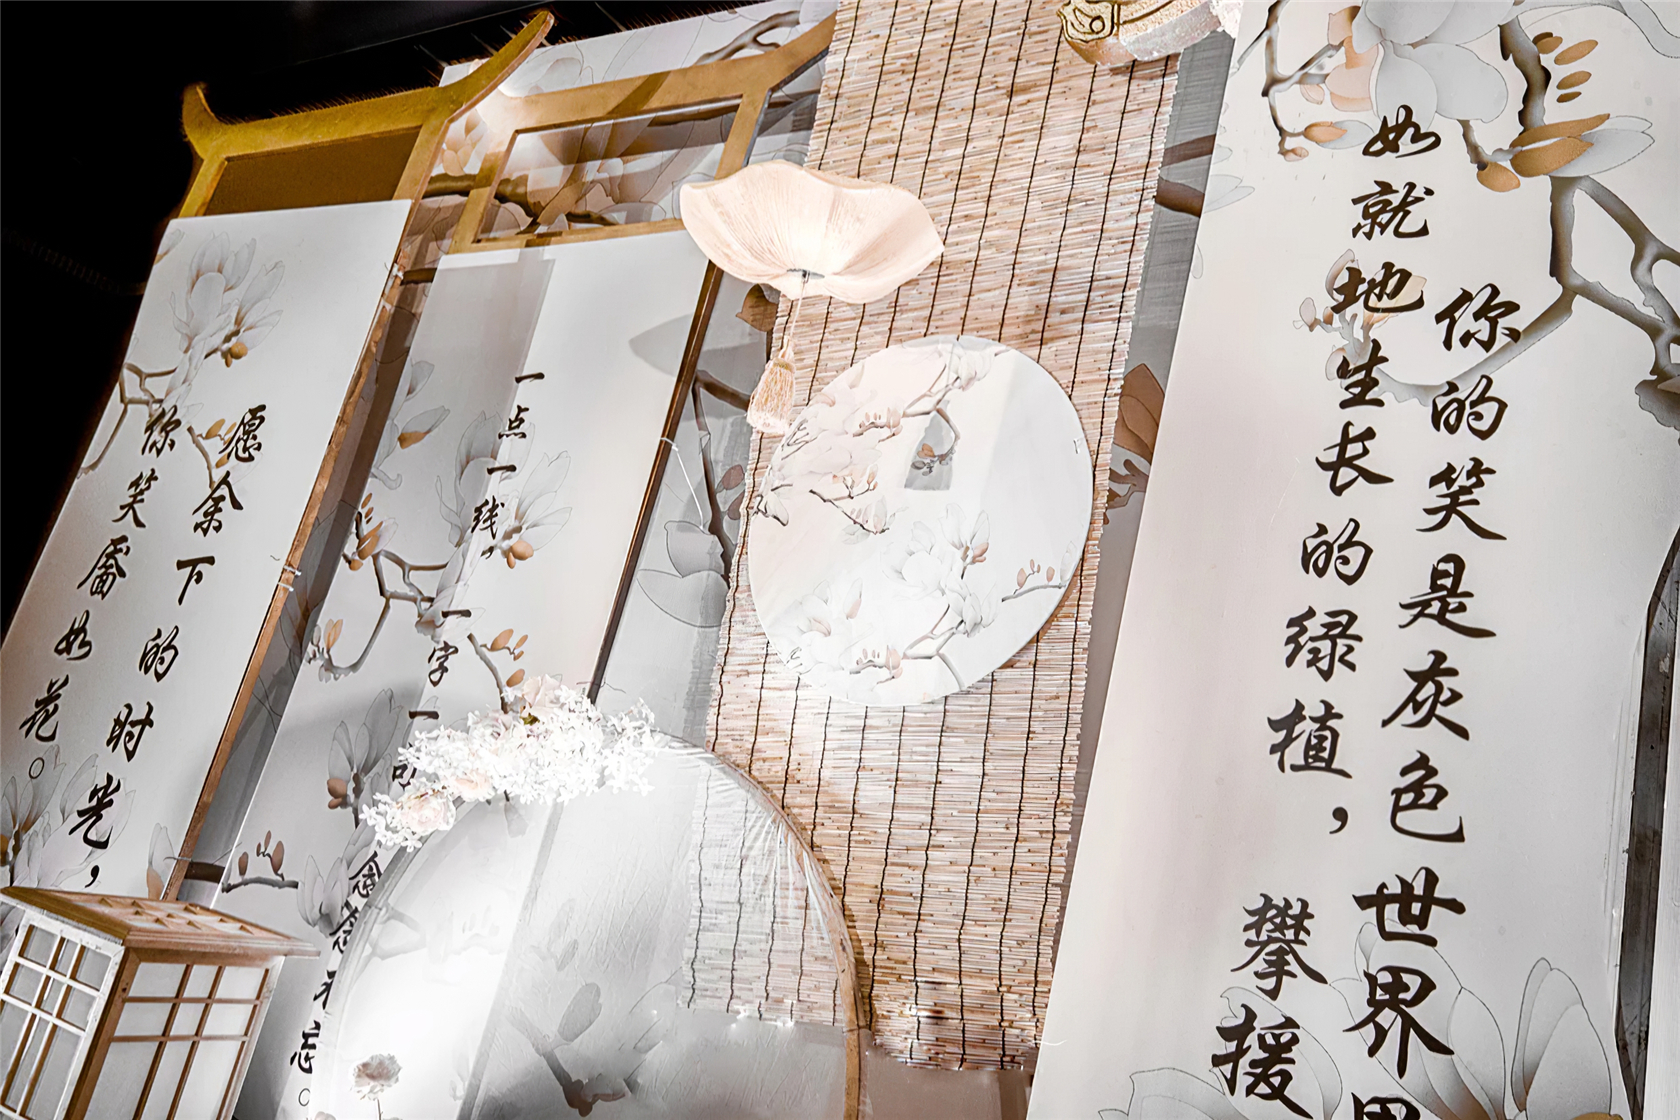 你的笑是灰色世界
如就地生长的绿植，攀援
一点一线，一字一
念念不忘。
愿余下的时光，
你笑靥如花。